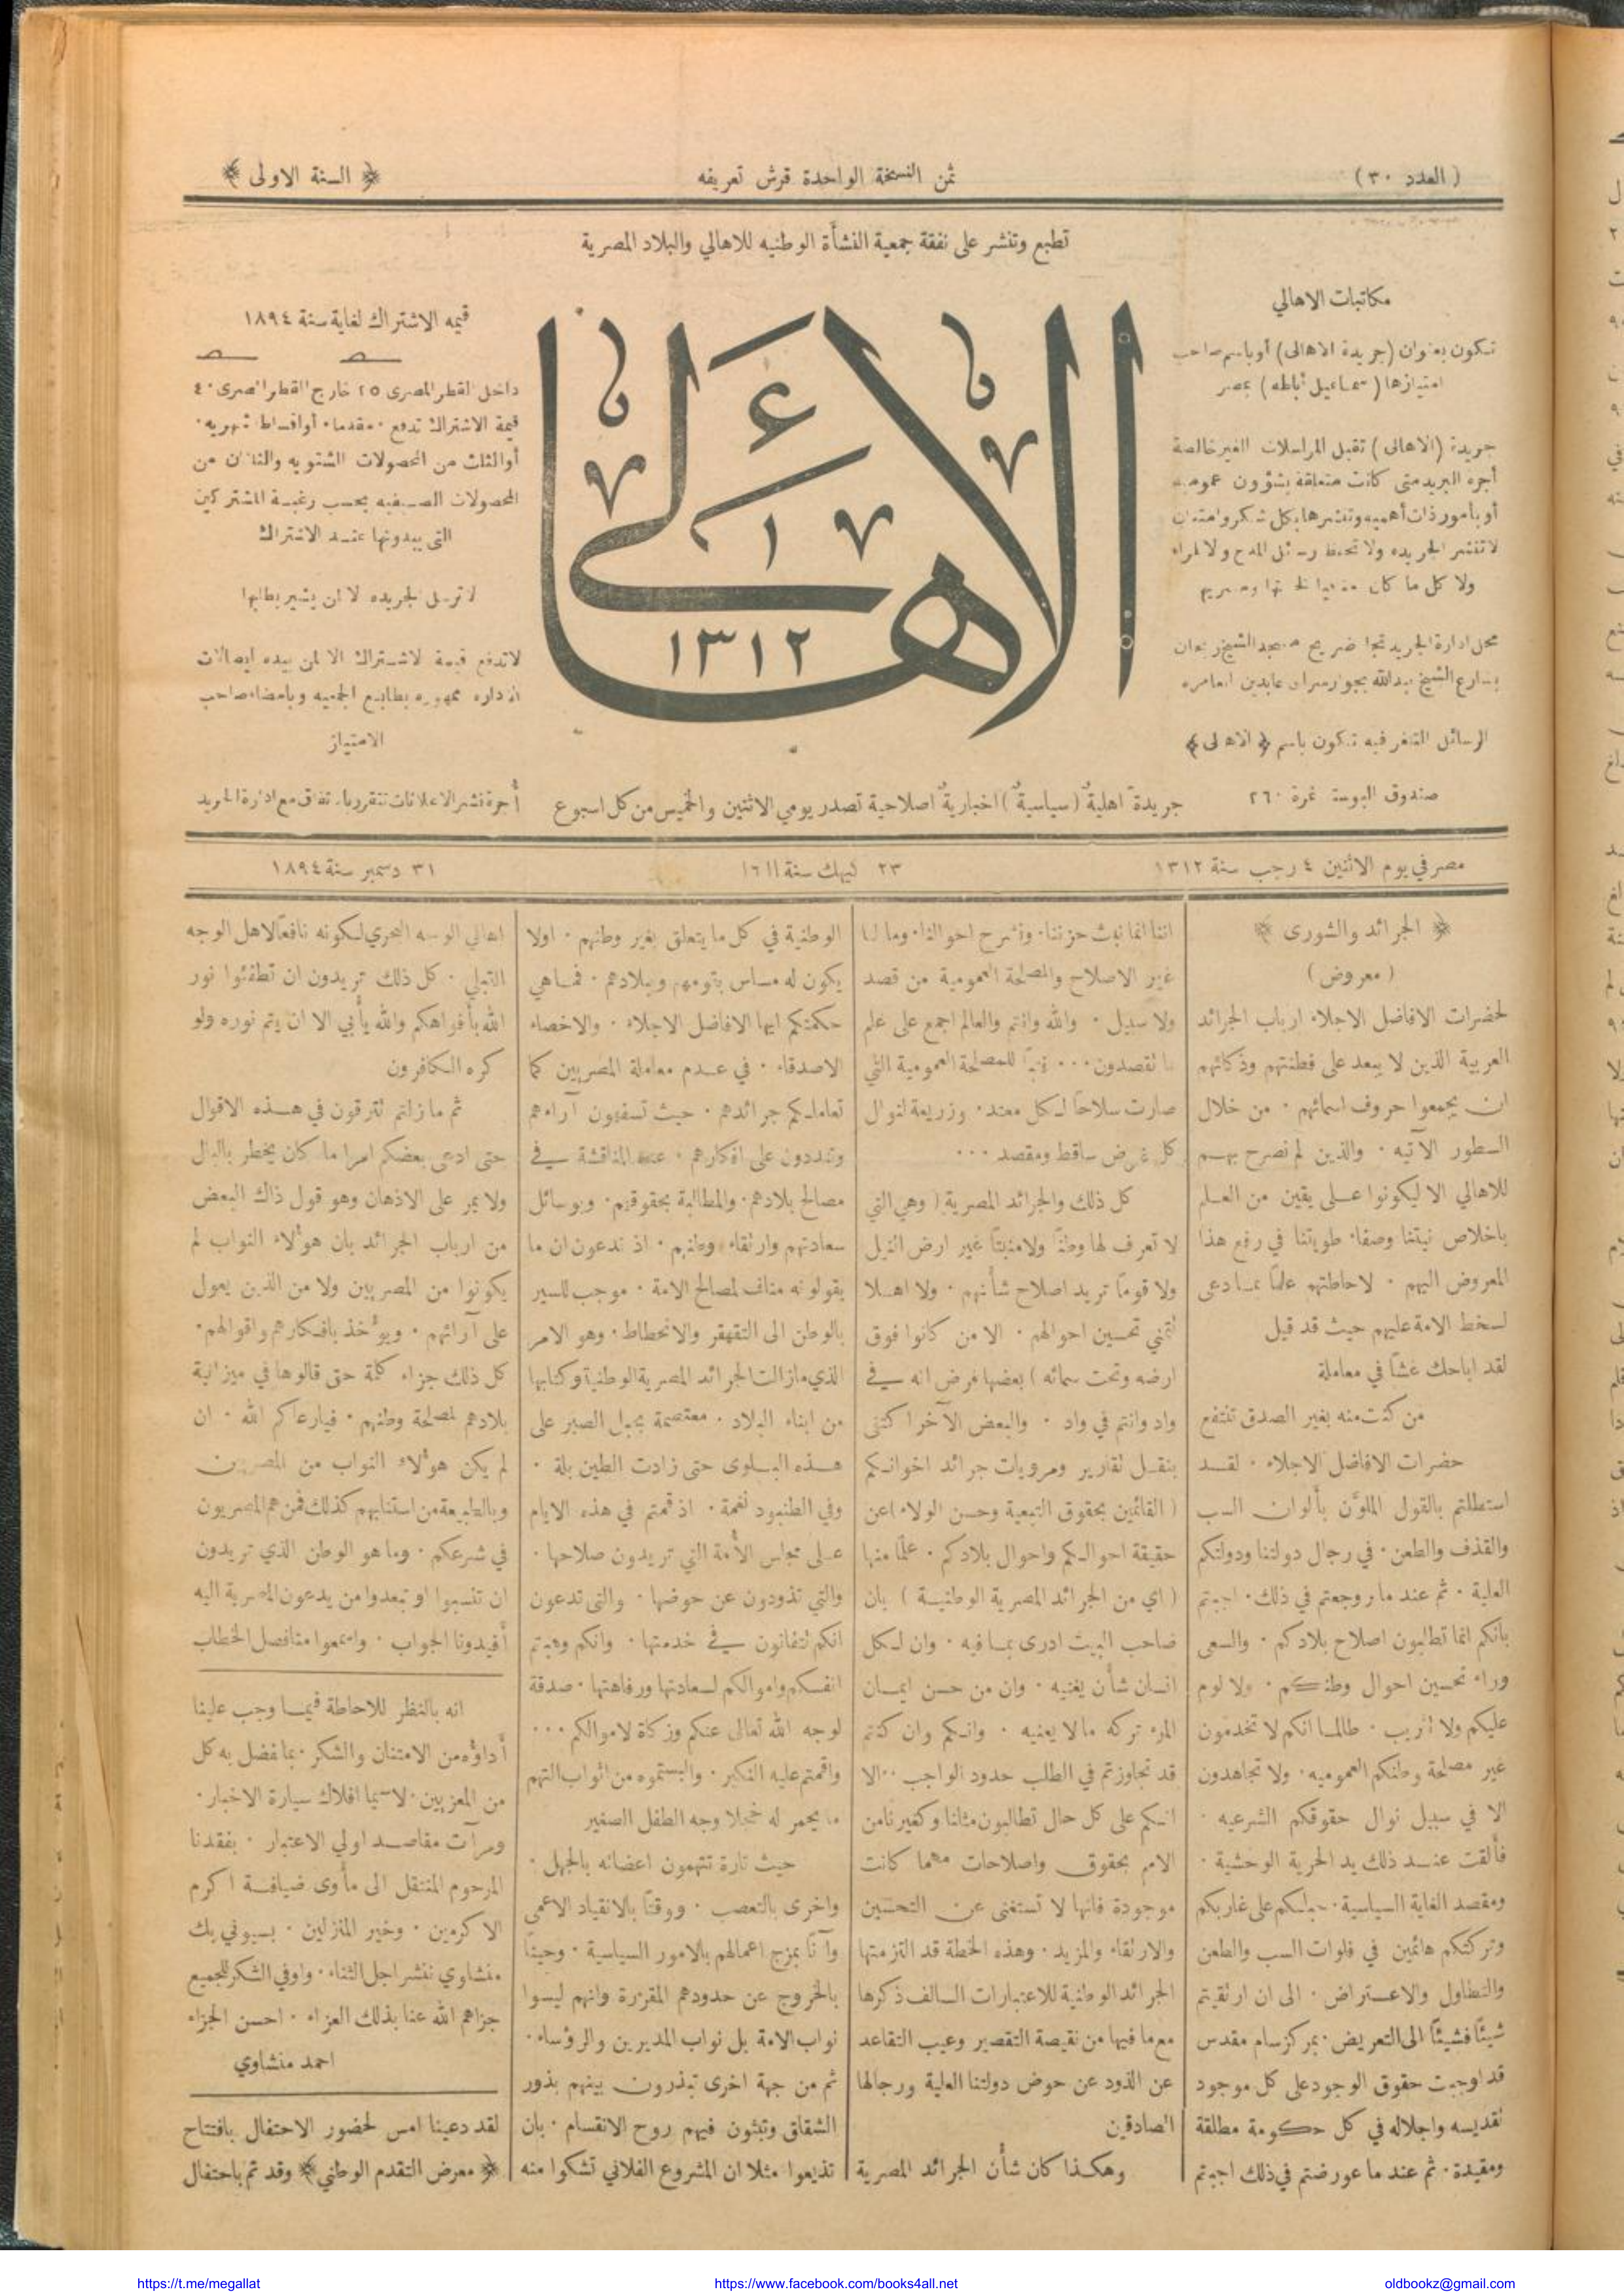 ( العدد ٣٠ )
ثمن النسخة الواحدة قرش تعريفه
﴿ السنة الاولى ﴾
تطبع وتنشر على نفقة جمعية النشأة الوطنيه للاهالي والبلاد المصرية
مكاتبات الاهالي
تكون بعنوان (جريدة الاهالى) أوباسم صاحب
امتيازها (سماعيل أباظه) بمصر
جريدة (الاهالى) تقبل المراسلات الغير خالصة
أجرة البريد متى كانت متعلقة بشؤون عموميه
أو بامور ذات أهميه وتنشرها بكل شكر وامتنان
لا تنشر الجريده ولا تحفظ رسائل المدح ولا المراء
ولا كل ما كان
محل ادارة الجريدة تجاه ضريح مسجد الشيخ ريحان
بشارع الشيخ عبدالله بجوار سراى عابدين العامره
الرسائل التلغرفيه تكون باسم ﴿ الاهالى ﴾
صندوق البوستة نمرة ٢٦٠
الاهالى
١٣١٢
قيمه الاشتراك لغاية سنة ١٨٩٤
داخل القطر المصرى ٢٥ خارج القطر المصرى ٤٠
قيمة الاشتراك تدفع مقدما أو اقساط شهريه
أو الثلث من المحصولات الشتويه والثلثان من
المحصولات الصيفيه بحسب رغبة المشتركين
التى يبدونها عند الاشتراك
لا ترسل الجريده الا لمن يشير بطلبها
لا تدفع قيمة الاشتراك الا لمن بيده ايصالات
الاداره ممهوره بطابع الجمعيه وبامضاء صاحب
الامتياز
أجرة نشر الاعلانات تتقرر باتفاق مع ادارة الجريده
جريدة اهلية (سياسية) اخبارية اصلاحية تصدر يومي الاثنين والخميس من كل اسبوع
مصر في يوم الاثنين ٤ رجب سنة ١٣١٢
٢٣ كيهك سنة ١٦١١
٣١ دسمبر سنة ١٨٩٤
﴿ الجرائد والشورى ﴾
( معروض )
لحضرات الافاضل الاجلاء ارباب الجرائد
العربية الذين لا يبعد على فطنتهم وذكائهم
ان يجمعوا حروف اسمائهم . من خلال
السطور الآتيه . والذين لم نصرح بهم
للاهالي الا ليكونوا على يقين من العلم
باخلاص نيتنا وصفاء طويتنا في رفع هذا
المعروض اليهم . لاحاطتهم علماً بما دعى
لسخط الامة عليهم حيث قد قيل
لقد اباحك غشاً في معاملة
من كنت منه بغير الصدق تنتفع
حضرات الافاضل الاجلاء . لقد
استطلتم بالقول الملوَّن بألوان السب
والقذف والطعن . في رجال دولتنا ودولتكم
العلية . ثم عند ما روجعتم في ذلك . اجبتم
بانكم انما تطالبون اصلاح بلادكم . والسعى
وراء تحسين احوال وطنكم . ولا لوم
عليكم ولا تثريب . طالما انكم لا تخدمون
غير مصلحة وطنكم العموميه . ولا تجاهدون
الا في سبيل نوال حقوقكم الشرعيه .
فألقت عند ذلك يد الحرية الوحشية .
ومقصد الغاية السياسية . حبلكم على غاربكم
وتركتكم هائمين في فلوات السب والطعن
والتطاول والاعتراض . الى ان ارتقيتم
شيئاً فشيئاً الى التعريض . بمركز سام مقدس
قد اوجبت حقوق الوجود على كل موجود
تقديسه واجلاله في كل حكومة مطلقة
ومقيدة . ثم عند ما عورضتم في ذلك اجبتم
اننا انما نبث حزننا . ونشرح احوالنا . وما لنا
غير الاصلاح والمصلحة العمومية من قصد
ولا سبيل . والله وانتم والعالم اجمع على علم
بما تقصدون ... فتباً للمصلحة العمومية التي
صارت سلاحاً لكل معتد . وزريعة لنوال
كل غرض ساقط ومقصد ...
كل ذلك والجرائد المصرية ( وهي التي
لا تعرف لها وطناً ولا منبتاً غير ارض النيل
ولا قوماً تريد اصلاح شأنهم . ولا اهلا
تتمني تحسين احوالهم . الا من كانوا فوق
ارضه وتحت سمائه ) بعضها فرض انه في
واد وانتم في واد . والبعض الآخر اكتفى
بنقل تقارير ومرويات جرائد اخوانكم
( القائمين بحقوق التبعية وحسن الولاء ) عن
حقيقة احوالكم واحوال بلادكم . علماً منها
( اي من الجرائد المصرية الوطنية ) بان
صاحب البيت ادرى بما فيه . وان لكل
انسان شأن يغنيه . وان من حسن ايمان
المرء تركه ما لا يعنيه . وانكم وان كنتم
قد تجاوزتم في الطلب حدود الواجب .. الا
انكم على كل حال تطالبون مثلنا وكغيرنا من
الامم بحقوق واصلاحات مهما كانت
موجودة فانها لا تستغنى عن التحسين
والارتقاء والمزيد . وهذه الخطة قد التزمتها
الجرائد الوطنية للاعتبارات السالف ذكرها
مع ما فيها من نقيصة التقصير وعيب التقاعد
عن الذود عن حوض دولتنا العلية ورجالها
الصادقين
وهكذا كان شأن الجرائد المصرية
الوطنية في كل ما يتعلق بغير وطنهم . اولا
يكون له مساس بقومهم وببلادهم . فما هي
حكمتكم ايها الافاضل الاجلاء . والاخصاء
الاصدقاء . في عدم معاملة المصريين كما
تعاملكم جرائدهم . حيث تسفهون آراءهم
وتنددون على افكارهم . عند المناقشة في
مصالح بلادهم . والمطالبة بحقوقهم . وبوسائل
سعادتهم وارتقاء وطنهم . اذ تدعون ان ما
يقولونه مناف لمصالح الامة . موجب للسير
بالوطن الى التقهقر والانحطاط . وهو الامر
الذي مازالت الجرائد المصرية الوطنية وكتابها
من ابناء البلاد . معتصمة بحبل الصبر على
هذه البلوى حتى زادت الطين بلة .
وفي الطنبور نغمة . اذ قمتم في هذه الايام
على مجلس الأمة التي تريدون صلاحها .
والتي تذودون عن حوضها . والتى تدعون
انكم تتفانون في خدمتها . وانكم وهبتم
انفسكم واموالكم لسعادتها ورفاهتها . صدقة
لوجه الله تعالى عنكم وزكاة لاموالكم ...
واقمتم عليه النكير . والبستموه من اثواب التهم
ما يحمر له خجلا وجه الطفل الصغير
حيث تارة تتهمون اعضائه بالجهل .
واخرى بالتعصب . ووقتاً بالانقياد الاعمى
وآناً بمزج اعمالهم بالامور السياسية . وحيناً
بالخروج عن حدودهم المقررة وانهم ليسوا
نواب الامة بل نواب المديرين والرؤساء .
ثم من جهة اخرى تبذرون بينهم بذور
الشقاق وتبثون فيهم روح الانقسام . بان
تذيعوا مثلا ان المشروع الفلاني تشكوا منه
اهالي الوجه البحري لكونه نافعاً لاهل الوجه
القبلي . كل ذلك تريدون ان تطفئوا نور
الله بأفواهكم والله يأبي الا ان يتم نوره ولو
كره الكافرون
ثم ما زلتم تترقون في هذه الاقوال
حتى ادعى بعضكم امرا ما كان يخطر بالبال
ولا يمر على الاذهان وهو قول ذاك البعض
من ارباب الجرائد بان هؤلاء النواب لم
يكونوا من المصريين ولا من الذين يعول
على آرائهم . ويؤخذ بافكارهم واقوالهم .
كل ذلك جزاء كلمة حق قالوها في ميزانية
بلادهم لمصلحة وطنهم . فيارعاكم الله . ان
لم يكن هؤلاء النواب من المصريين
وبالطبيعة من استنابهم كذلك فمن هم المصريون
في شرعكم . وما هو الوطن الذي تريدون
ان تنسبوا او تبعدوا من يدعون المصرية اليه
أفيدونا الجواب . واسمعوا منا فصل الخطاب
انه بالنظر للاحاطة فيما وجب علينا
أداؤه من الامتنان والشكر . بما فضل به كل
من المعزيين . لاسيما افلاك سيارة الاخبار .
ومرآت مقاصد اولي الاعتبار . بفقدنا
المرحوم المنتقل الى مأوى ضيافة اكرم
الاكرمين . وخير المنزلين . بسيوني بك
منشاوي ننشر اجل الثناء . واوفي الشكر للجميع
جزاهم الله عنا بذلك العزاء . احسن الجزاء
احمد منشاوي
لقد دعينا امس لحضور الاحتفال بافتتاح
﴿ معرض التقدم الوطني ﴾ وقد تم باحتفال
https://t.me/megallat
https://www.facebook.com/books4all.net
oldbookz@gmail.com